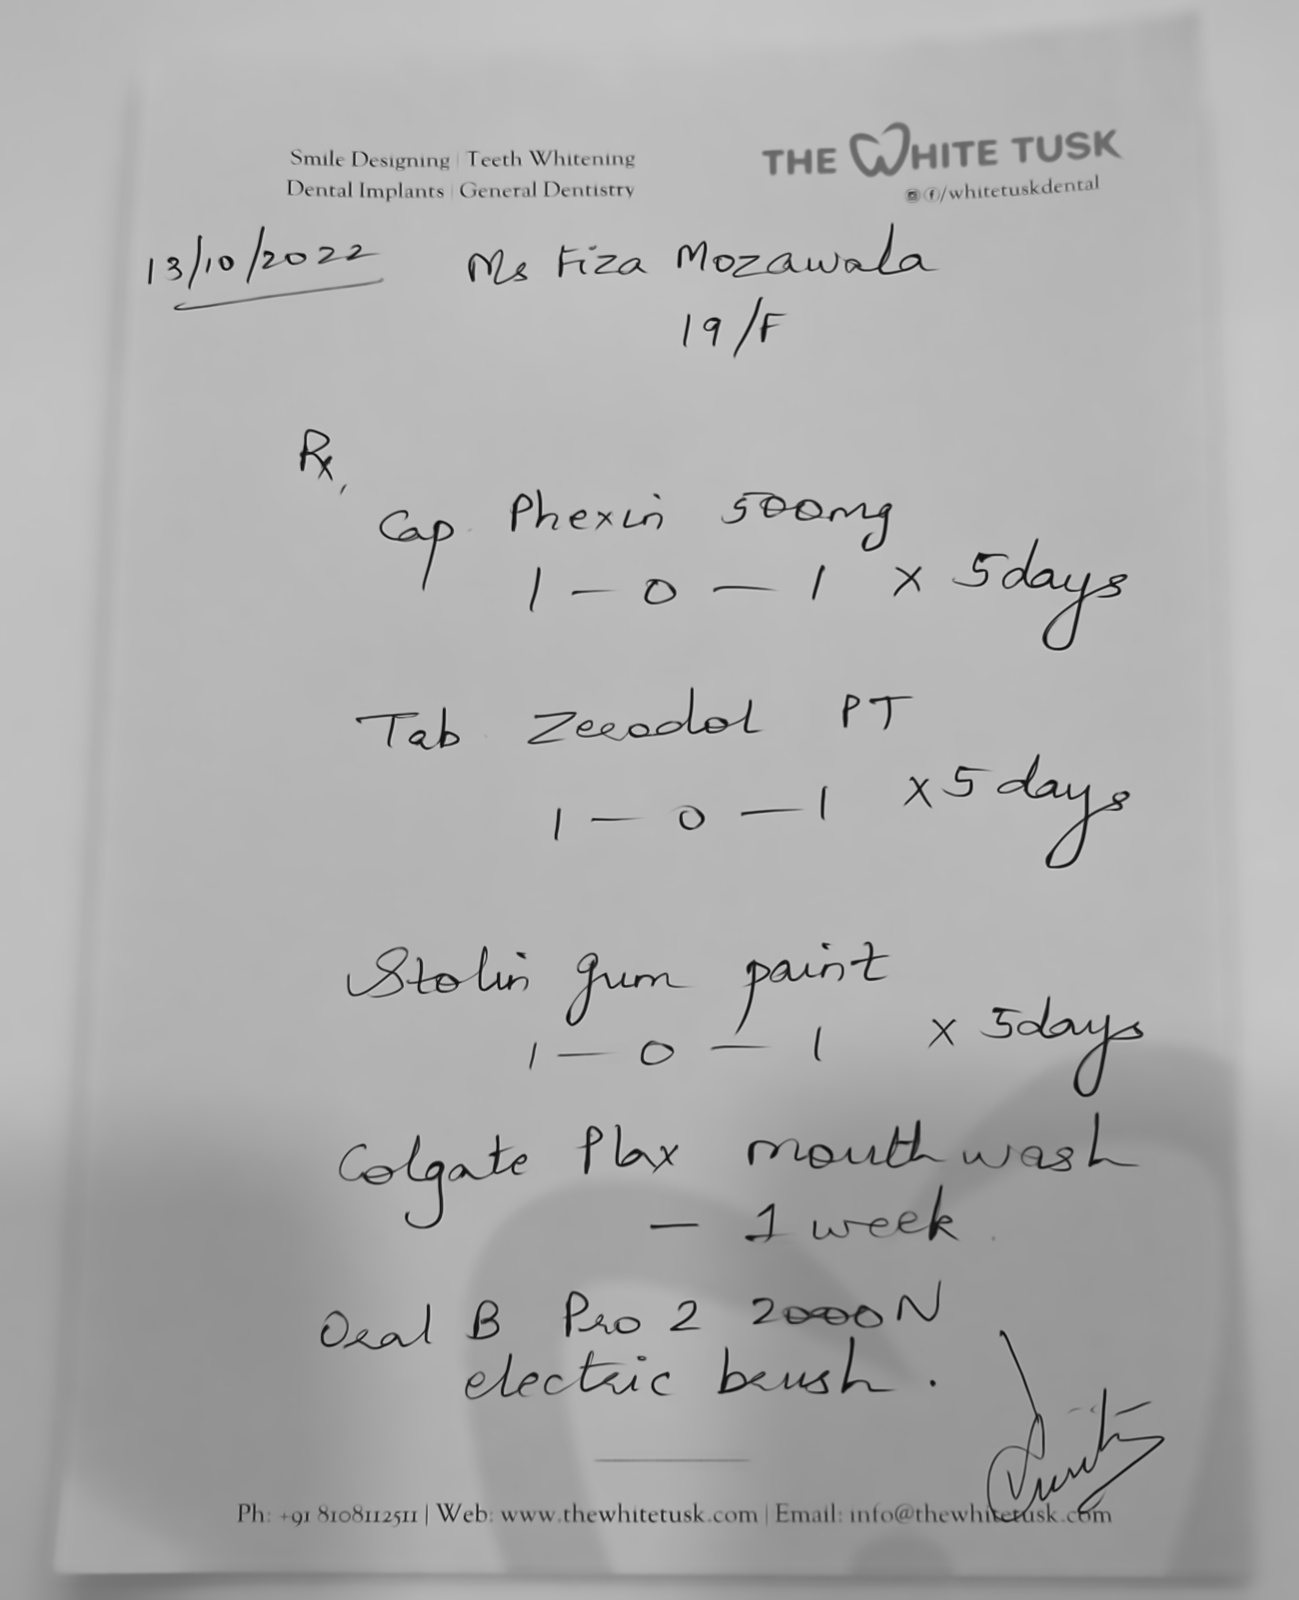 Smile Designing | Teeth Whitening
Dental Implants | General Dentistry
THE WHITE TUSK
/whitetuskdental
13/10/2022
Ms Fiza Mozawala
19/F
Rx,
Cap Phexin 500mg
1 - 0 - 1 x 5days
Tab Zerodol PT
1 - 0 - 1 x 5 days
Stolin gum paint
1 - 0 - 1 x 5days
Colgate Plax mouth wash
- 1 week
Oral B Pro 2 2000 N
electric brush.
Ph: +91 8108112511 | Web: www.thewhitetusk.com | Email: info@thewhitetusk.com